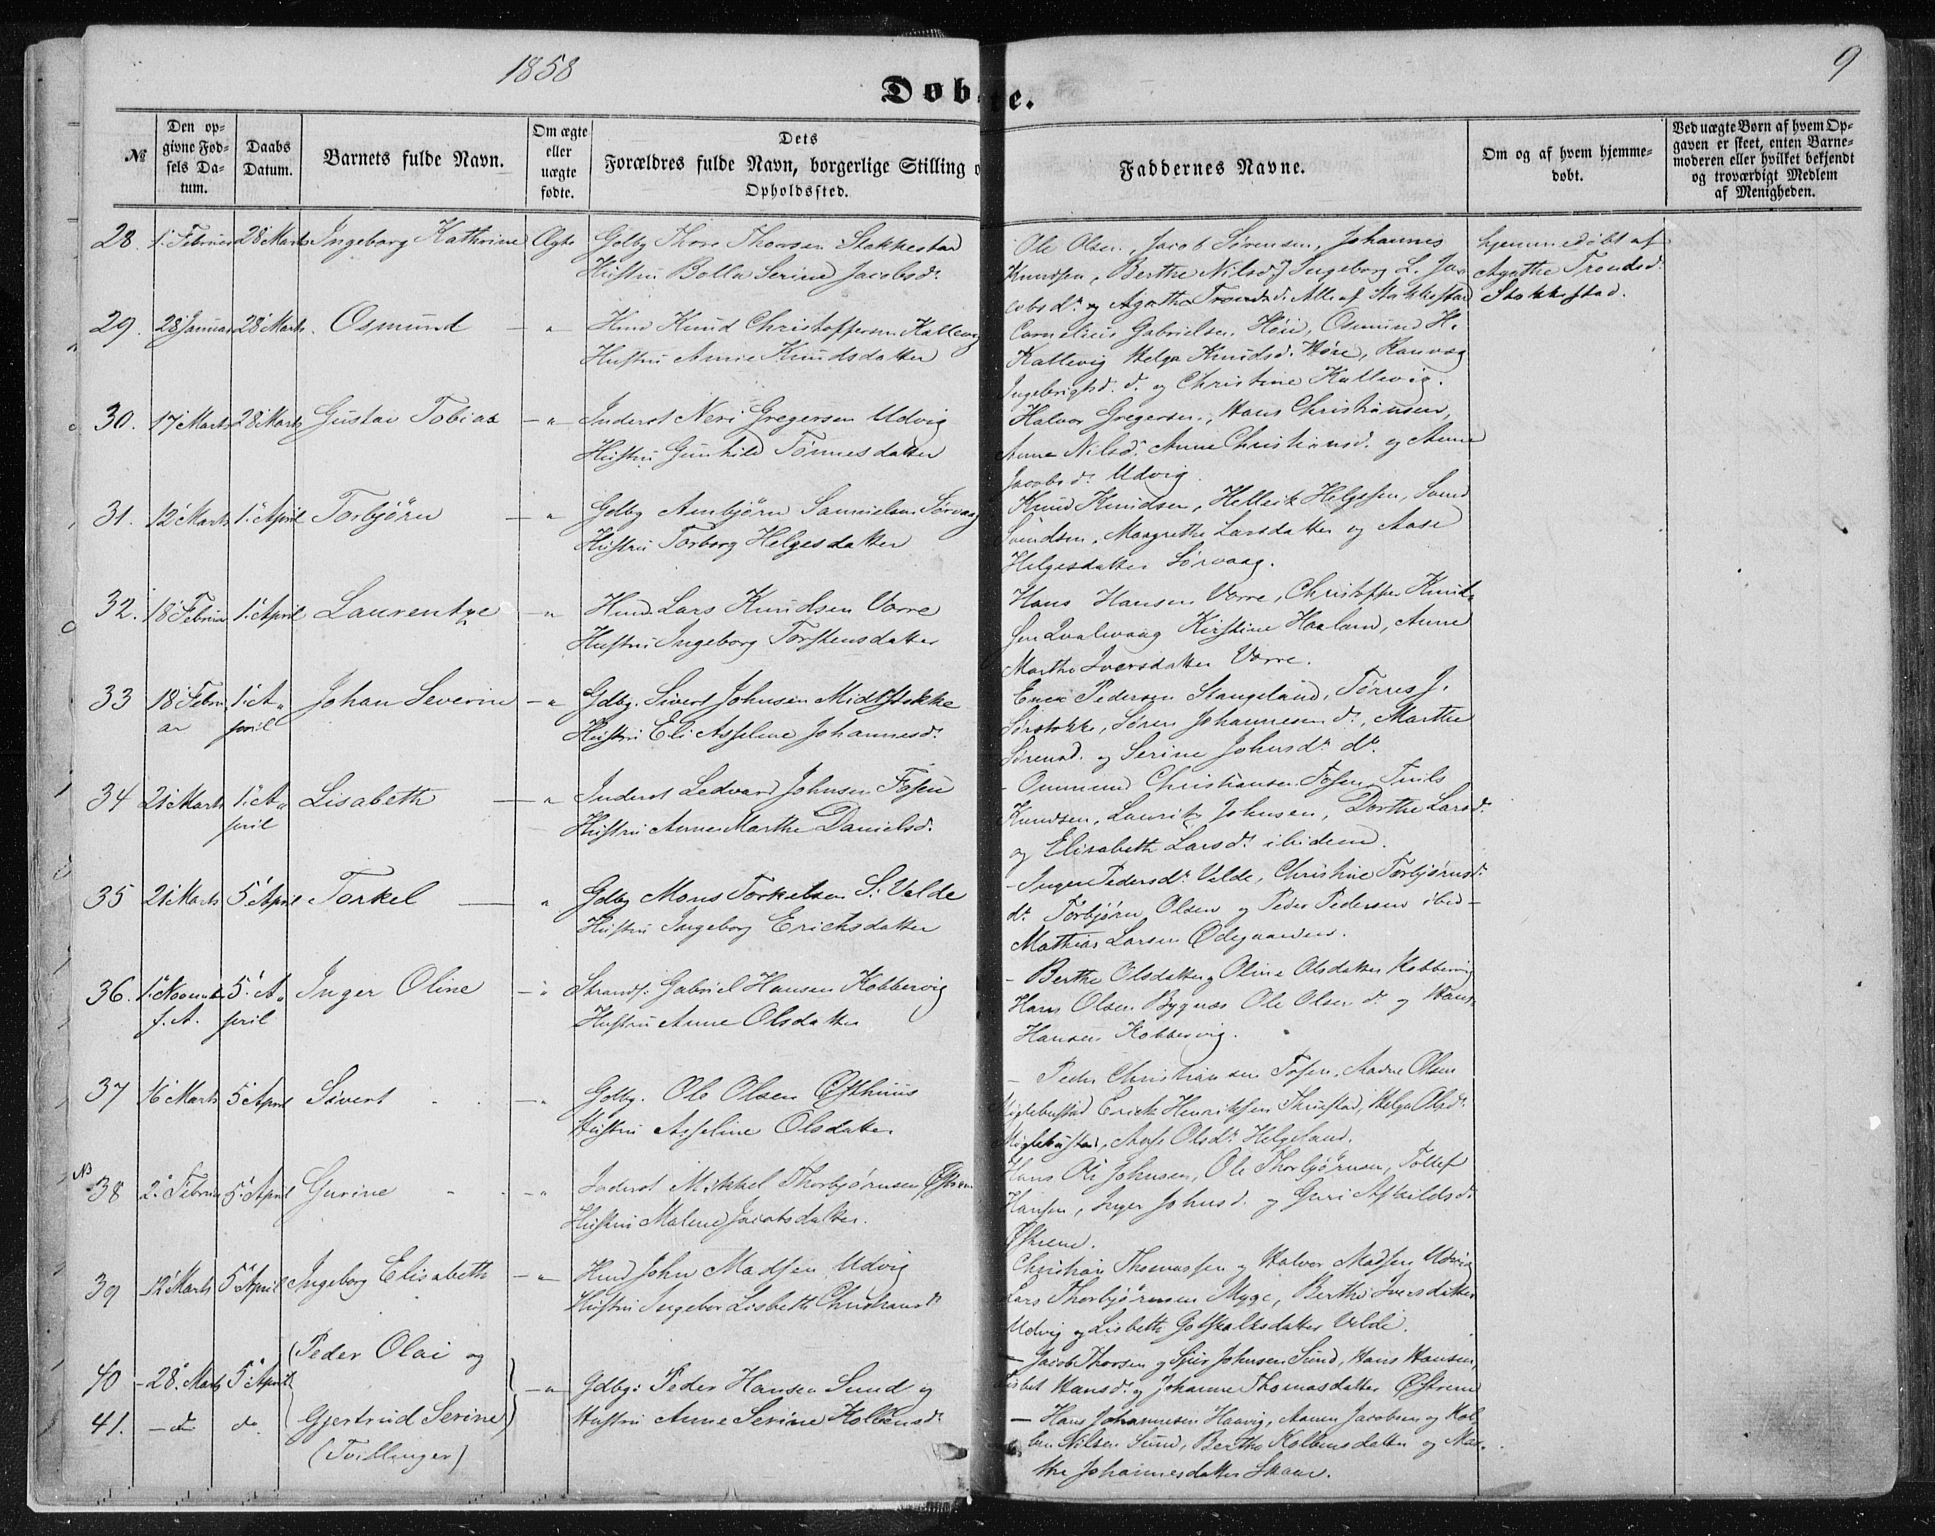 1858
9
Døbte.
№
Den op-
givne Fød-
sels Da-
tum.
Daabs
Datum.
Barnets fulde Navn.
Om ægte
eller
uægte
fødte.
Dets
Forældres fulde Navn, borgerlige Stilling o
Opholdssted.
Faddernes Navne.
Om og af hvem hjemme-
døbt.
Ved uægte Børn af hvem Op-
gaven er skeet, enten Barne-
moderen eller hvilket bekjendt
og troværdigt Medlem
af Menigheden.
28. 1. Februar 28 Marts Ingeborg Kathrine Ægte Gdbg Thore Thorsen Stokkestad
Hustru Bolla Serine Jacobsd.
Ole Olsen, Jacob Sørensen, Johannes
Knudsen, Berthe Nilsd. Ingeborg L. Ja-
cobsdr. og Agathe Trondsd. Alle af Stokkestad
hjemmedøbt af
Agathe Trondsd.
Stokkestad.
29. 28 Januar 28 Marts. Osmund - " Hmd Knud Christoffersen Kallevig
Hustru Anne Knudsdatter
Cornelius Gabrielsen Høie, Osmund H.
Kallevig Helga Knudsd. Høie, Ranvaag
Ingebrigtsd. d. og Christine Kallevig.
30. 17 Marts 28 Marts Gustav Tobias - " - Inderst Neri Gregersen Udvig
Hustru Gunhild Tønnesdatter
Halvor Gregersen, Hans Christiansen,
Anna Nilsd. Anne Christiansd. og Anne
Jacobsd. Udvig.
31. 12 Marts 1. April Torbjørn - " Gdbg Ambjørn Samuelsen Sørvaag
Hustru Torborg Helgesdatter
Knud Knudsen, Hellerik Helgesen, Svend
Svendsen, Margrethe Larsdatter og Aase
Helgesdatter Sørvaag.
32. 18 Februar 1. April Laurentze - " Hmd Lars Knudsen Vorre
Hustru Ingeborg Torstensdatter
Hans Hansen Vorre, Christoffer Knud-
sen Qvalevaag Kirstine Haaland, Anne
Marthe Iversdatter Vorre.
33 18 Febru- 1. A- Johan Severin - " Gdbg. Sivert Johnsen Midtstokke
ar pril Hustru Eli Asseline Johannesd.
Enok Pedersen Stangeland, Tørres J.
Sørstokke, Søren Johannesen d., Marthe
Sørensd. og Serine Johnsdr. dr.
34 21 Marts 1. A- Lisabeth - " Inderst Ledvard Johnsen Fosen
pril Hustru Anne Marthe Danielsd.
- Ommund Christiansen Fosen, Truls
Knudsen, Laurits Johnsen, Dorthe Larsd.
og Elisabeth Larsdr. ibidem.
35 21 Marts 5 April Torkel - " Gdbg Mons Torkelsen S. Velde
Hustru Ingeborg Erichsdatter
- Inger Pedersdr. Velde, Christine Torbjørnsd.
dr. Torbjørn Olsen og Peder Pedersen ibid-
Mathias Larsen Ødegaarden.
36. 1. Novembr 5. A- Inger Oline - " Strands. Gabriel Hansen Kobbervig
f. A. pril Hustru Anne Olsdatter
- Berthe Olsdatter og Oline Olsdatter Kobbervig
Hans Olsen Bygnæs Ole Olsen dr. og Hans
Hansen Kobbervig.
37 16 Marts 5 April Sivert - " Gdbg. Ole Olsen Østhuus
Hustru Asseline Olsdatter
- Peder Christiansen Fosen, Aadne Olsen
Miglebustad Erick Henriksen Thuestad, Helga Olsdr.
Miglebustad, Aase Olsdr. Helgeland.
NB 38 2. Februar 5 April Gurine - " Inderst Mikkel Thorbjørnsen Østrem
Hustru Malene Jacobsdatter.
Hans Ole Johnsen, Ole Thorbjørnsen, Tollef
Hansen, Inger Johnsd. og Guri Askildsd.
Østrem.
39 12 Marts 5 April Ingeborg Elisabeth - " Hmd John Madsen Udvig
Hustru Ingebor Lisbeth Christiansdr.
Christian Thomassen og Halvor Madsen Udvig
Lars Thorbjørnsen Myge, Berthe Iversdatter
Udvig og Lisbeth Gotskalksdatter Velde.
40 - 28. Marts 5 April (Peder Olai og
Gdbg. Peder Hansen Sund og
- Jacob Thorsen og Sjur Johnsen Sund, Hans Hansen,
Lisbet Hansd. og Johanne Thomasdatter Østrem
41. - d. d. Gjertrud Serine)
(Tvillinger)
Hustru Anne Serine Kolbensdr.
- Hans Johannesen Haavig, Aamen Jacobsen og Kol-
ben Nilsen Sund, Berthe Kolbensdatter og Mar-
the Johannesdatter Skaar.